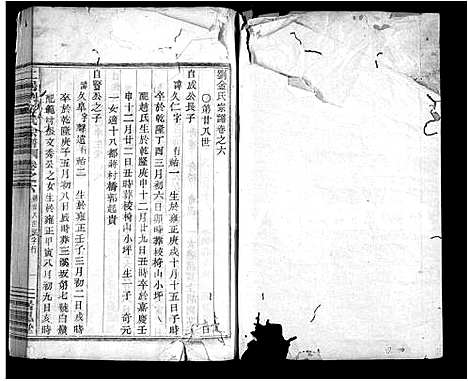 劉金氏宗譜卷之六
〇第廿八世
自成公長子
諱久仁字 行 祐一 生於雍正庚戌十月十五日子時
卒於乾隆丁酉三月初六日亥時葬 椅山小坪
配趙氏生於乾隆庚申十二月廿九日丑時卒於嘉慶壬
申十二月廿二日丑時葬 椅山小坪 生一子 奇元
一女適十八都蔣村橋郭起貴
自賢公之子
諱久阜字聲遠行祐二 生於雍正壬子三月初二日戌時
卒於乾隆庚子五月初八日辰時葬三溪坂第七號白蟻
配 村張文秀公之女生於雍正甲寅八月初九日亥時